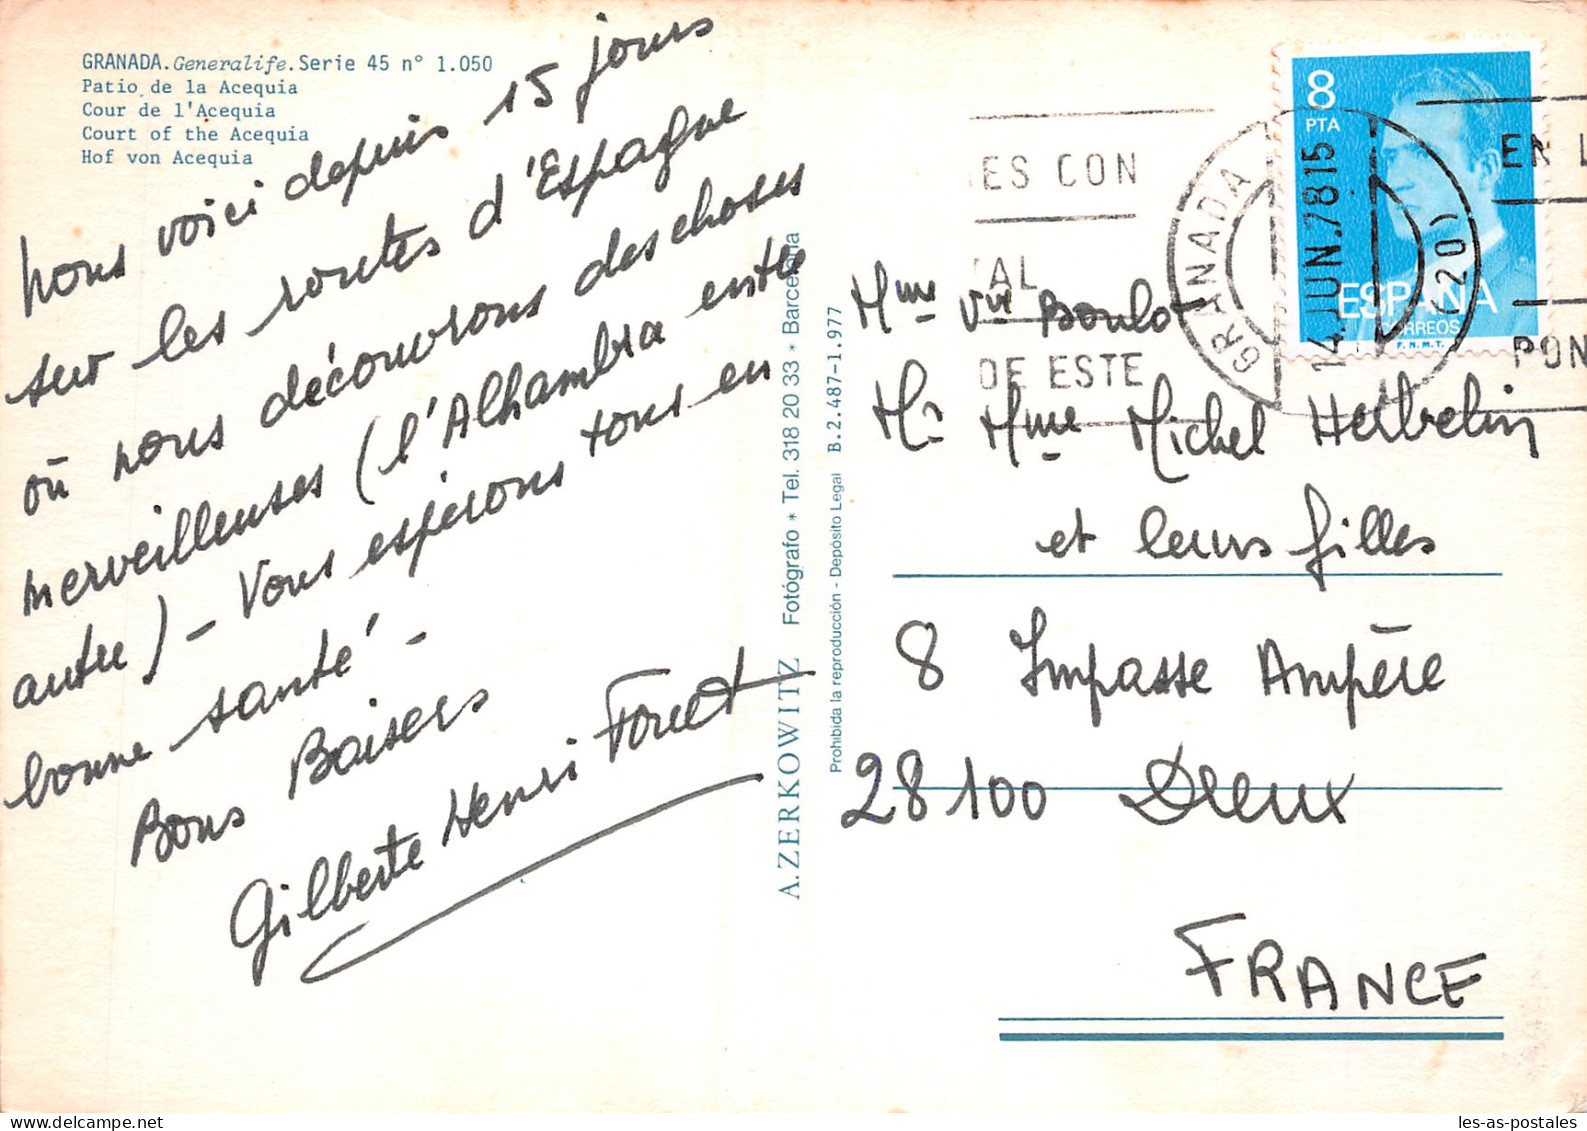 GRANADA.Generalife.Serie 45 n° 1.050
Patio de la Acequia
Cour de l'Acequia
Court of the Acequia
Hof von Acequia
Nous voici depuis 15 jours
sur les routes d'Espagne
où nous découvrons des choses
merveilleuses (l'Alhambra entre
autre) - Vous espérons tous en
bonne santé -
Bons Baisers
Gilberte Henri Forest
A. ZERKOWITZ Fotógrafo * Tel. 318 20 33 * Barcelona
Prohibida la reproducción - Depósito Legal B.2.487-1.977
8
PTA
ESPAÑA
CORREOS
F.N.M.T.
GRANADA
14.JUN.7815
(20)
ES CON
AL
DE ESTE
EN L
PON
Mme Vve Boulot
Mr Mme Michel Herbelin
et leurs filles
8 Impasse Ampère
28100 Dreux
FRANCE
les-as-postales